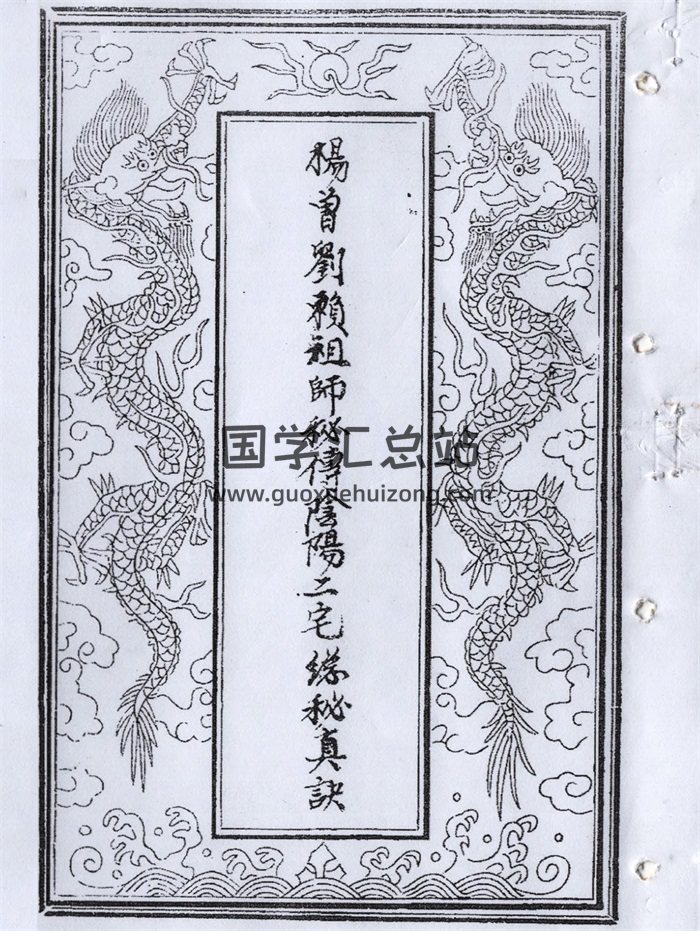 楊曾劉賴祖師秘傳陰陽二宅秘真訣
国学汇总站
www.guoxuehuizong.com